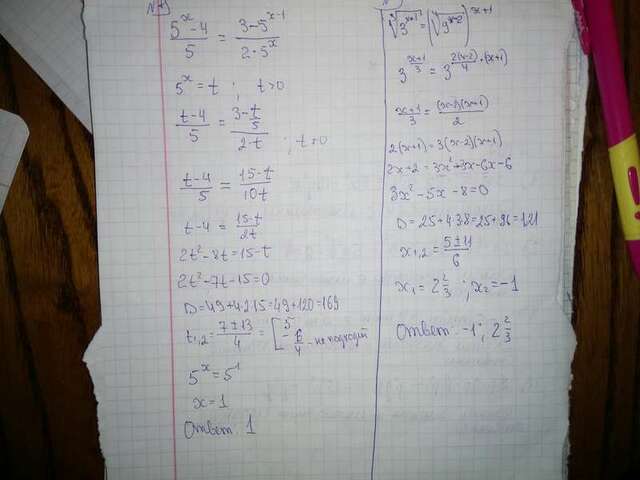 N1
(5^x-4)/5 = (3-5^(x-1))/(2·5^x)
5^x = t ; t>0
(t-4)/5 = (3-t/5)/(2·t) ; t>0
(t-4)/5 = (15-t)/(10t)
t-4 = (15-t)/(2t)
2t²-8t=15-t
2t²-7t-15=0
D=49+4·2·15=49+120=169
t1,2 = (7±13)/4 = [5; -6/4 - не подходит
5^x=5^1
x=1
Ответ: 1
3^((x+1)/3) = 3^(2(x-2)·(x+1)/4)
(x+1)/3 = ((x-2)(x+1))/2
2(x+1)=3(x-2)(x+1)
2x+2=3x²+3x-6x-6
3x²-5x-8=0
D=25+4·3·8=25+96=121
x1,2 = (5±11)/6
x1 = 2 2/3 ; x2=-1
Ответ: -1; 2 2/3